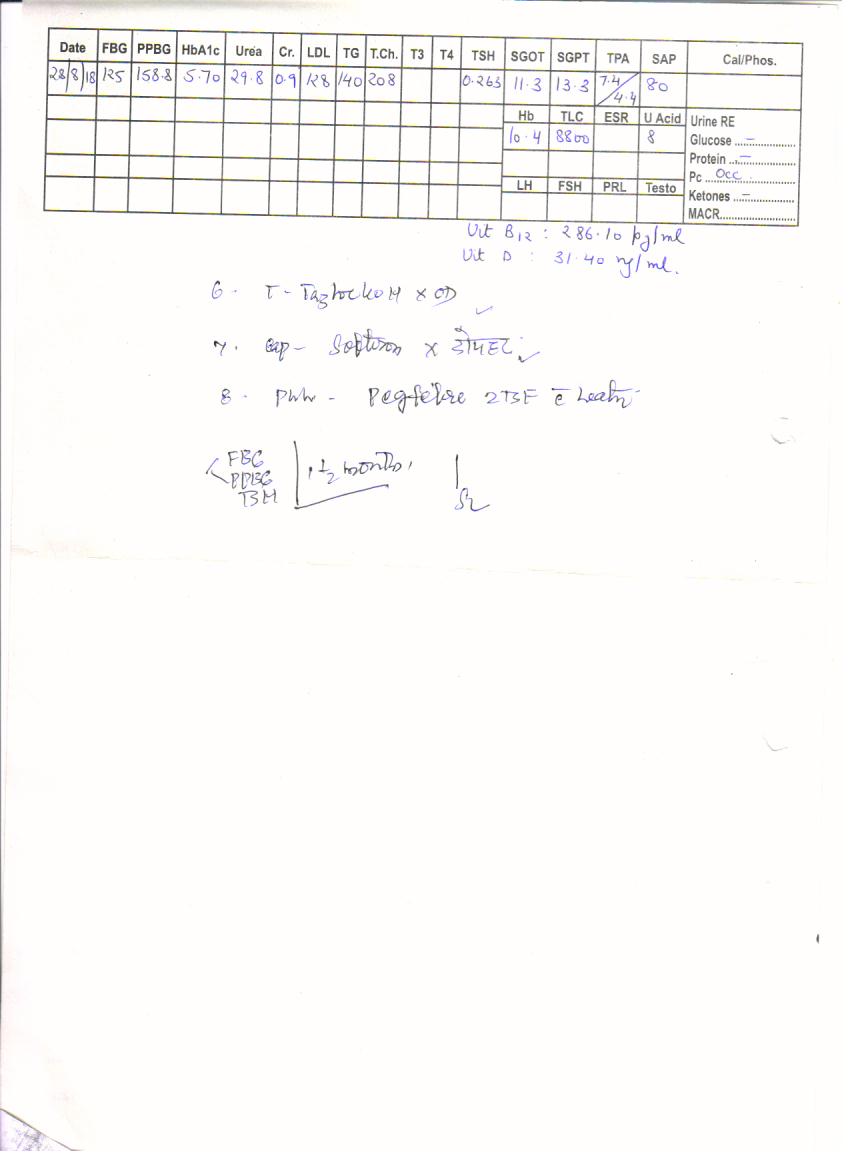 Date FBG PPBG HbA1c Urea Cr. LDL TG T.Ch. T3 T4 TSH SGOT SGPT TPA SAP Cal/Phos.
28/8/18 125 158.8 5.70 29.8 0.9 128 140 208 0.263 11.3 13.3 7.4/4.4 80
Hb TLC ESR U Acid Urine RE
10.4 8800 8 Glucose –
Protein –
Pc Occ
LH FSH PRL Testo Ketones –
MACR
Vit B12 : 286.10 pg/ml
Vit D : 31.40 ng/ml.
6. T- x OD
7. cap- x दोपहर
8. 2TSF c̄
FBG
PPBG 1½ months